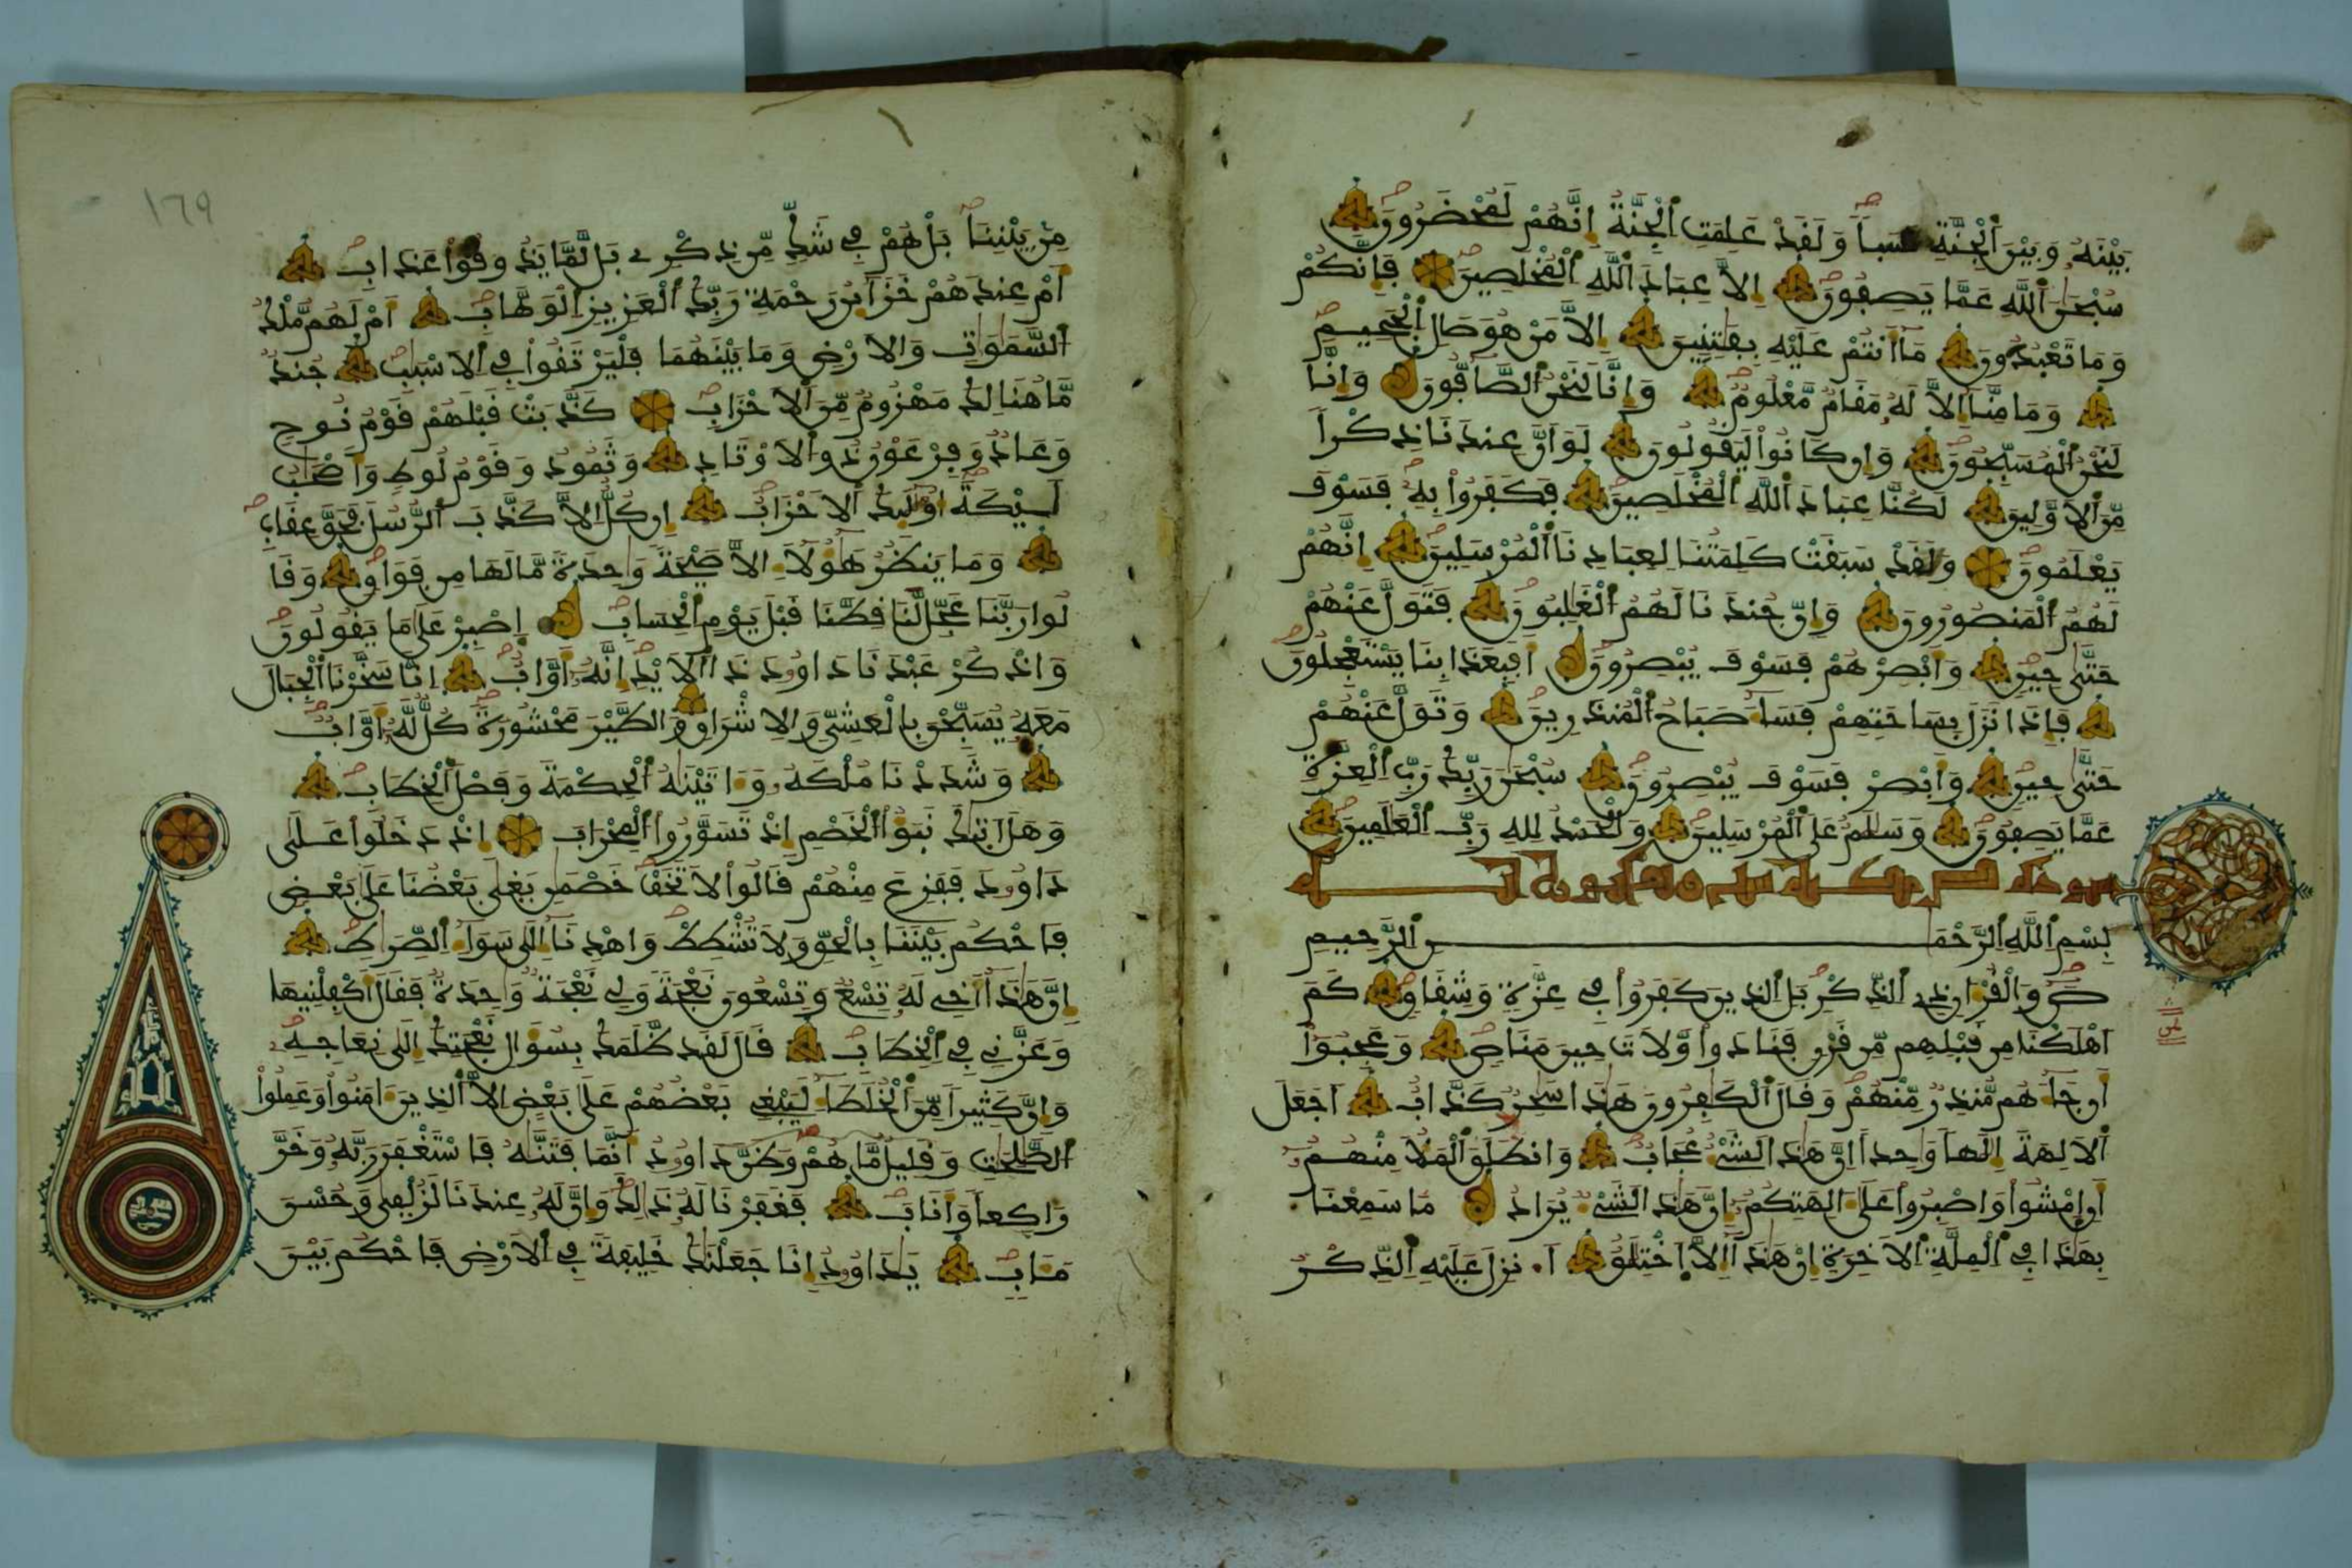 بَيْنَهُۥ وَبَيْنَ ٱلْجِنَّةِ نَسَباٗ وَلَقَدْ عَلِمَتِ ٱلْجِنَّةُ إِنَّهُمْ لَمُحْضَرُونَ
سُبْحَٰنَ ٱللَّهِ عَمَّا يَصِفُونَ إِلَّا عِبَادَ ٱللَّهِ ٱلْمُخْلَصِينَ فَإِنَّكُمْ
وَمَا تَعْبُدُونَ مَا أَنتُمْ عَلَيْهِ بِفَٰتِنِينَ إِلَّا مَنْ هُوَ صَالِ ٱلْجَحِيمِ
وَمَا مِنَّا إِلَّا لَهُۥ مَقَامٌ مَّعْلُومٌ وَإِنَّا لَنَحْنُ ٱلصَّآفُّونَ وَإِنَّا
لَنَحْنُ ٱلْمُسَبِّحُونَ وَإِن كَانُوا۟ لَيَقُولُونَ لَوَ اَنَّ عِندَنَا ذِكْراٗ
مِّنَ ٱلَاوَّلِينَ لَكُنَّا عِبَادَ ٱللَّهِ ٱلْمُخْلَصِينَ فَكَفَرُوا۟ بِهِۦ فَسَوْفَ
يَعْلَمُونَ وَلَقَدْ سَبَقَتْ كَلِمَتُنَا لِعِبَادِنَا ٱلْمُرْسَلِينَ إِنَّهُمْ
لَهُمُ ٱلْمَنصُورُونَ وَإِنَّ جُندَنَا لَهُمُ ٱلْغَٰلِبُونَ فَتَوَلَّ عَنْهُمْ
حَتَّىٰ حِينٍ وَأَبْصِرْهُمْ فَسَوْفَ يُبْصِرُونَ أَفَبِعَذَابِنَا يَسْتَعْجِلُونَ
فَإِذَا نَزَلَ بِسَاحَتِهِمْ فَسَآءَ صَبَاحُ ٱلْمُنذَرِينَ وَتَوَلَّ عَنْهُمْ
حَتَّىٰ حِينٍ وَأَبْصِرْ فَسَوْفَ يُبْصِرُونَ سُبْحَٰنَ رَبِّكَ رَبِّ ٱلْعِزَّةِ
عَمَّا يَصِفُونَ وَسَلَٰمٌ عَلَى ٱلْمُرْسَلِينَ وَٱلْحَمْدُ لِلهِ رَبِّ ٱلْعَٰلَمِينَ
بِسْمِ ٱللَّهِ ٱلرَّحْمَٰنِ ٱلرَّحِيمِ
صٓ وَٱلْقُرْءَانِ ذِے ٱلذِّكْرِ بَلِ ٱلذِينَ كَفَرُوا۟ فِے عِزَّةٖ وَشِقَاقٖ كَمَ
اَهْلَكْنَا مِن قَبْلِهِم مِّن قَرْنٖ فَنَادَوا۟ وَّلَاتَ حِينَ مَنَاصٖ وَعَجِبُوٓا۟
أَن جَآءَهُم مُّنذِرٞ مِّنْهُمْ وَقَالَ ٱلْكَٰفِرُونَ هَٰذَا سَٰحِرٞ كَذَّابٌ أَجَعَلَ
ٱلَالِهَةَ إِلَٰهاٗ وَٰحِداً إِنَّ هَٰذَا لَشَےْءٌ عُجَابٞ وَانطَلَقَ ٱلْمَلَأُ مِنْهُمُۥٓ
أَنِ اِمْشُوا۟ وَاصْبِرُوا۟ عَلَىٰٓ ءَالِهَتِكُمُۥٓ إِنَّ هَٰذَا لَشَےْءٞ يُرَادُ مَا سَمِعْنَا
بِهَٰذَا فِے ٱلْمِلَّةِ ٱلَاخِرَةِ إِنْ هَٰذَآ إِلَّا اَخْتِلَٰقٌ أَ۟نزِلَ عَلَيْهِ ٱلذِّكْرُ
١٦٩
مِنۢ بَيْنِنَا بَلْ هُمْ فِے شَكّٖ مِّن ذِكْرِے بَل لَّمَّا يَذُوقُوا۟ عَذَابِ
أَمْ عِندَهُمْ خَزَآئِنُ رَحْمَةِ رَبِّكَ ٱلْعَزِيزِ ٱلْوَهَّابِ أَمْ لَهُم مُّلْكُ
ٱلسَّمَٰوَٰتِ وَالَارْضِ وَمَا بَيْنَهُمَا فَلْيَرْتَقُوا۟ فِے ٱلَاسْبَٰبِ جُندٞ
مَّا هُنَالِكَ مَهْزُومٞ مِّنَ ٱلَاحْزَابِ كَذَّبَتْ قَبْلَهُمْ قَوْمُ نُوحٖ
وَعَادٞ وَفِرْعَوْنُ ذُو ٱلَاوْتَادِ وَثَمُودُ وَقَوْمُ لُوطٖ وَأَصْحَٰبُ
لَيْكَةَ أُوْلَٰٓئِكَ ٱلَاحْزَابُ إِن كُلٌّ اِلَّا كَذَّبَ ٱلرُّسُلَ فَحَقَّ عِقَابِ
وَمَا يَنظُرُ هَٰٓؤُلَآءِ اِلَّا صَيْحَةٗ وَٰحِدَةٗ مَّا لَهَا مِن فَوَاقٖ وَقَا
لُوا۟ رَبَّنَا عَجِّل لَّنَا قِطَّنَا قَبْلَ يَوْمِ ٱلْحِسَابِ اِصْبِرْ عَلَىٰ مَا يَقُولُونَ
وَاذْكُرْ عَبْدَنَا دَاوُۥدَ ذَا ٱلَايْدِ إِنَّهُۥٓ أَوَّابٌ اِنَّا سَخَّرْنَا ٱلْجِبَالَ
مَعَهُۥ يُسَبِّحْنَ بِالْعَشِيِّ وَالِاشْرَاقِ وَالطَّيْرَ مَحْشُورَةٗ كُلّٞ لَّهُۥٓ أَوَّابٞ
وَشَدَدْنَا مُلْكَهُۥ وَءَاتَيْنَٰهُ ٱلْحِكْمَةَ وَفَصْلَ ٱلْخِطَابِ
وَهَلَ اَتَىٰكَ نَبَؤُا۟ ٱلْخَصْمِ إِذْ تَسَوَّرُوا۟ ٱلْمِحْرَابَ إِذْ دَخَلُوا۟ عَلَىٰ
دَاوُۥدَ فَفَزِعَ مِنْهُمْ قَالُوا۟ لَا تَخَفْ خَصْمَٰنِ بَغَىٰ بَعْضُنَا عَلَىٰ بَعْضٖ
فَاحْكُم بَيْنَنَا بِالْحَقِّ وَلَا تُشْطِطْ وَاهْدِنَآ إِلَىٰ سَوَآءِ ٱلصِّرَٰطِ
إِنَّ هَٰذَآ أَخِے لَهُۥ تِسْعٞ وَتِسْعُونَ نَعْجَةٗ وَلِے نَعْجَةٞ وَٰحِدَةٞ فَقَالَ أَكْفِلْنِيهَا
وَعَزَّنِے فِے ٱلْخِطَابِ قَالَ لَقَد ظَّلَمَكَ بِسُؤَالِ نَعْجَتِكَ إِلَىٰ نِعَاجِهِۦ
وَإِنَّ كَثِيراٗ مِّنَ ٱلْخُلَطَآءِ لَيَبْغِے بَعْضُهُمْ عَلَىٰ بَعْضٍ اِلَّا ٱلذِينَ ءَامَنُوا۟ وَعَمِلُوا۟
ٱلصَّٰلِحَٰتِ وَقَلِيلٞ مَّا هُمْ وَظَنَّ دَاوُۥدُ أَنَّمَا فَتَنَّٰهُ فَاسْتَغْفَرَ رَبَّهُۥ وَخَرَّ
رَاكِعاٗ وَأَنَابَ فَغَفَرْنَا لَهُۥ ذَٰلِكَ وَإِنَّ لَهُۥ عِندَنَا لَزُلْفَىٰ وَحُسْنَ
مَـَٔابٖ يَٰدَاوُۥدُ إِنَّا جَعَلْنَٰكَ خَلِيفَةٗ فِے ٱلَارْضِ فَاحْكُم بَيْنَ